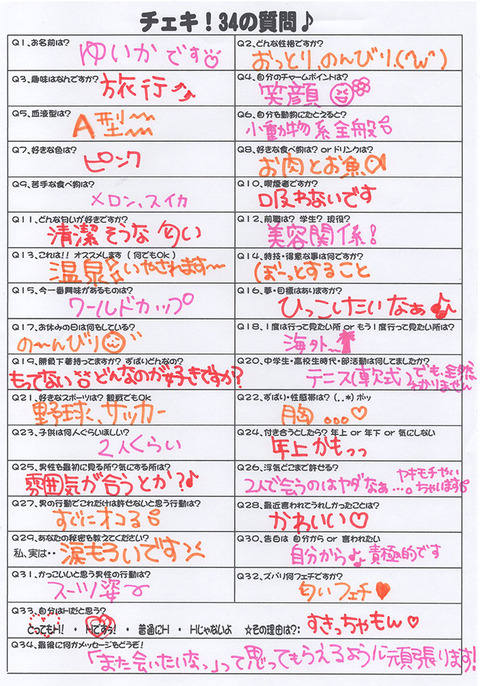 チェキ！34の質問♪
Q1、お名前は?
ゆいかです
Q2、どんな性格ですか?
おっとり、のんびり、(^ω^)
Q3、趣味はなんですか?
旅行♪
Q4、自分のチャームポイントは?
笑顔
Q5、血液型は?
A型
Q6、自分も動物にたとえると?
小動物系全般
Q7、好きな色は?
ピンク
Q8、好きな食べ物は? orドリンクは?
お肉とお魚
Q9、苦手な食べ物は?
メロン、スイカ
Q10、喫煙者ですか?
吸わないです
Q11、どんな匂いが好きですか?
清潔そうな匂い
Q12、前職は? 学生? 現役?
美容関係!
Q13、これは!! オススメします (何でもOk)
温泉 いやされます〜
Q14、特技・得意な事は何ですか?
ぼーっとすること
Q15、今一番興味があるものは?
ワールドカップ
Q16、夢・目標はありますか?
ひっこしたいなぁ♪
Q17、お休みの日は何をしている?
の〜んびり
Q18、1度は行って見たい所 or もう1度行って見たい所は?
海外〜
Q19、勝負下着持ってますか? ずばりどんなの?
もってない どんなのが好きですか?
Q20、中学生・高校生時代・部活動は何してましたか?
テニス(軟式)でも全然わかりません
Q21、好きなスポーツは? 観戦でもOK
野球、サッカー
Q22、ずばり・性感帯は? (..*) ポッ
胸...♡
Q23、子供は何人ぐらいほしい?
2人くらい
Q24、付き合うとしたら? 年上 or 年下 or 気にしない
年上かもっっ
Q25、男性も最初に見る所?気にする所は?
雰囲気が合うとか?♪
Q26、浮気どこまで許せる?
2人で会うのはヤダなぁ...。ヤキモチやいちゃいます
Q27、男の行動でこれだけは許せないと思う行動は?
すぐにオコる
Q28、最近言われてうれしかったことは?
かわいい♡
Q29、あなたの秘密を教えてください?
私、実は・・涙もろいです
Q30、告白は 自分から or 言われたい
自分からよ 積極的です
Q31、かっこいいと思う男性の行動は?
スーツ姿
Q32、ズバリ何フェチですか?
匂いフェチ♥
Q33、自分はHだと思う?
とってもH! ・ Hですぅ! ・ 普通にH ・ Hじゃないよ ☆その理由は?:
すきっちゃもん♡
Q34、最後に何かメッセージもどうぞ!
「また会いたいなっ」って思ってもらえるように頑張ります!